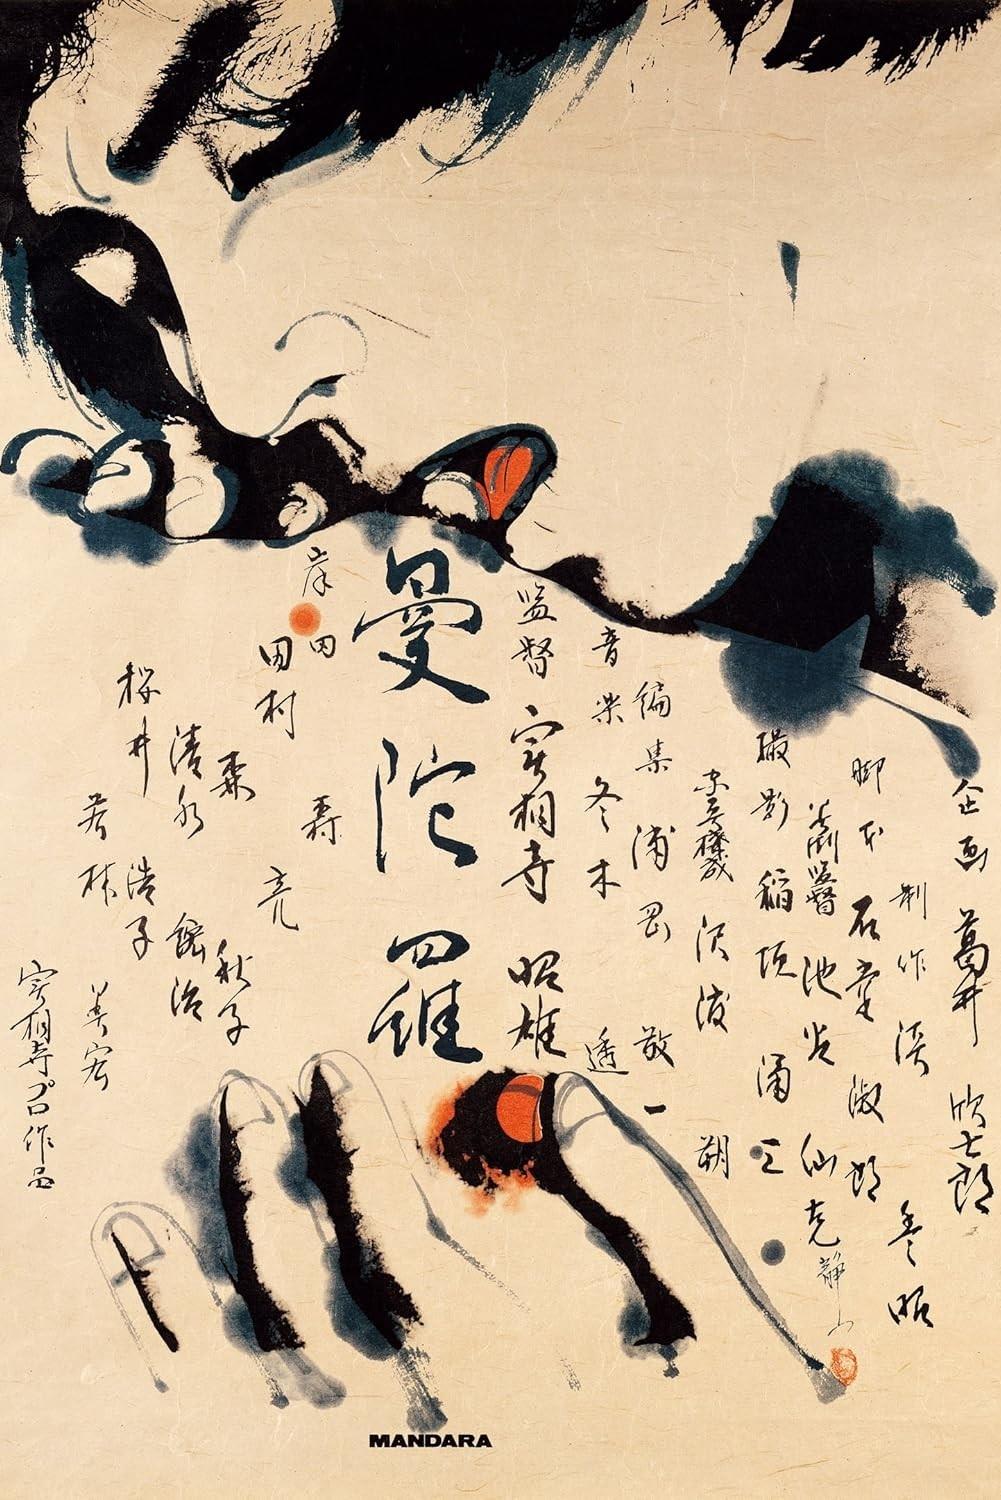 企画 葛井 欣士郎
制作 淡 豊昭
脚本 石堂 淑朗
美術監督 池谷 仙克
撮影 稲垣 涌三
沢渡 朔
編集 浦岡 敬一
音楽 冬木 透
監督 実相寺 昭雄
曼陀羅
岸田 森
田村 亮
森 秋子
清水 紘治
桜井 浩子
若林 美宏
実相寺プロ作品
静山
MANDARA